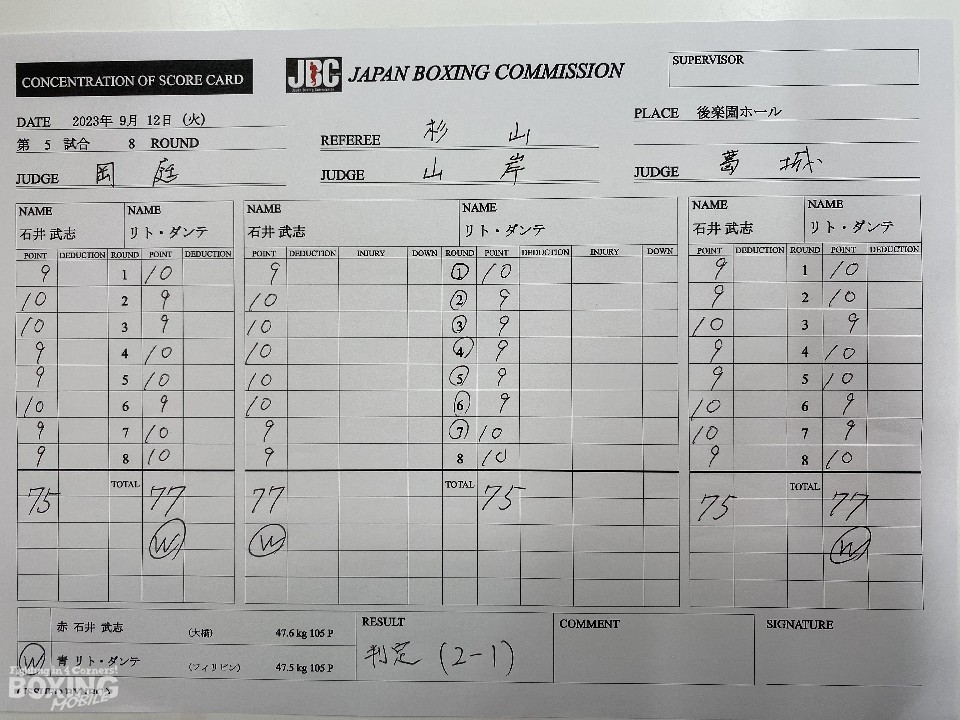 CONCENTRATION OF SCORE CARD
JBC JAPAN BOXING COMMISSION
SUPERVISOR
DATE 2023年 9月 12日 (火)
REFEREE 杉 山
PLACE 後楽園ホール
第 5 試合 8 ROUND
JUDGE 岡 庭
JUDGE 山 岸
JUDGE 葛 城
NAME NAME NAME NAME NAME NAME
石井 武志 リト・ダンテ 石井 武志 リト・ダンテ 石井 武志 リト・ダンテ
POINT DEDUCTION ROUND POINT DEDUCTION POINT DEDUCTION INJURY DOWN ROUND POINT DEDUCTION INJURY DOWN POINT DEDUCTION ROUND POINT DEDUCTION
9 1 10 9 1 10 9 1 10
10 2 9 10 2 9 9 2 10
10 3 9 10 3 9 10 3 9
9 4 10 10 4 9 9 4 10
9 5 10 10 5 9 9 5 10
10 6 9 10 6 9 10 6 9
9 7 10 9 7 10 10 7 9
9 8 10 9 8 10 9 8 10
75 TOTAL 77 77 TOTAL 75 75 TOTAL 77
W W W
赤 石井 武志 (大橋) 47.6 kg 105 P
W 青 リト・ダンテ (フィリピン) 47.5 kg 105 P
RESULT
判定 (2-1)
COMMENT
SIGNATURE
Fighting in 4 Corners!
BOXING
MOBILE